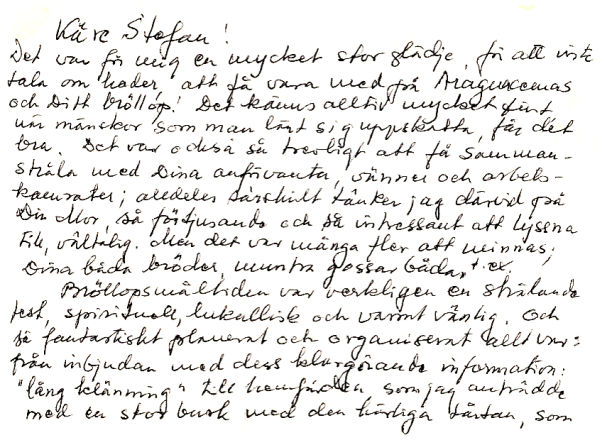 Käre Stefan!
Det var för mig en mycket stor glädje, för att inte
tala om heder, att få vara med på
och Ditt bröllop! Det känns alltid mycket fint
när mänskor som man lärt sig uppskatta, får det
bra. Det var också så trevligt att få samman-
stråla med Dina anförvanter, vänner och arbets-
kamrater; alldeles särskilt tänker jag därvid på
Din Mor, så förtjusande och så intressant att lyssna
till, vältalig. Men det var många fler att minnas;
Dina båda bröder, muntra gossar båda, t.ex.
Bröllopsmåltiden var verkligen en strålande
fest, spirituell, lukullisk och varmt vänlig. Och
så fantastiskt planerat och organiserat allt var:
från inbjudan med dess klargörande information:
"lång klänning" till hemfärden som jag anträdde
med en stor burk med den härliga tårtan, som